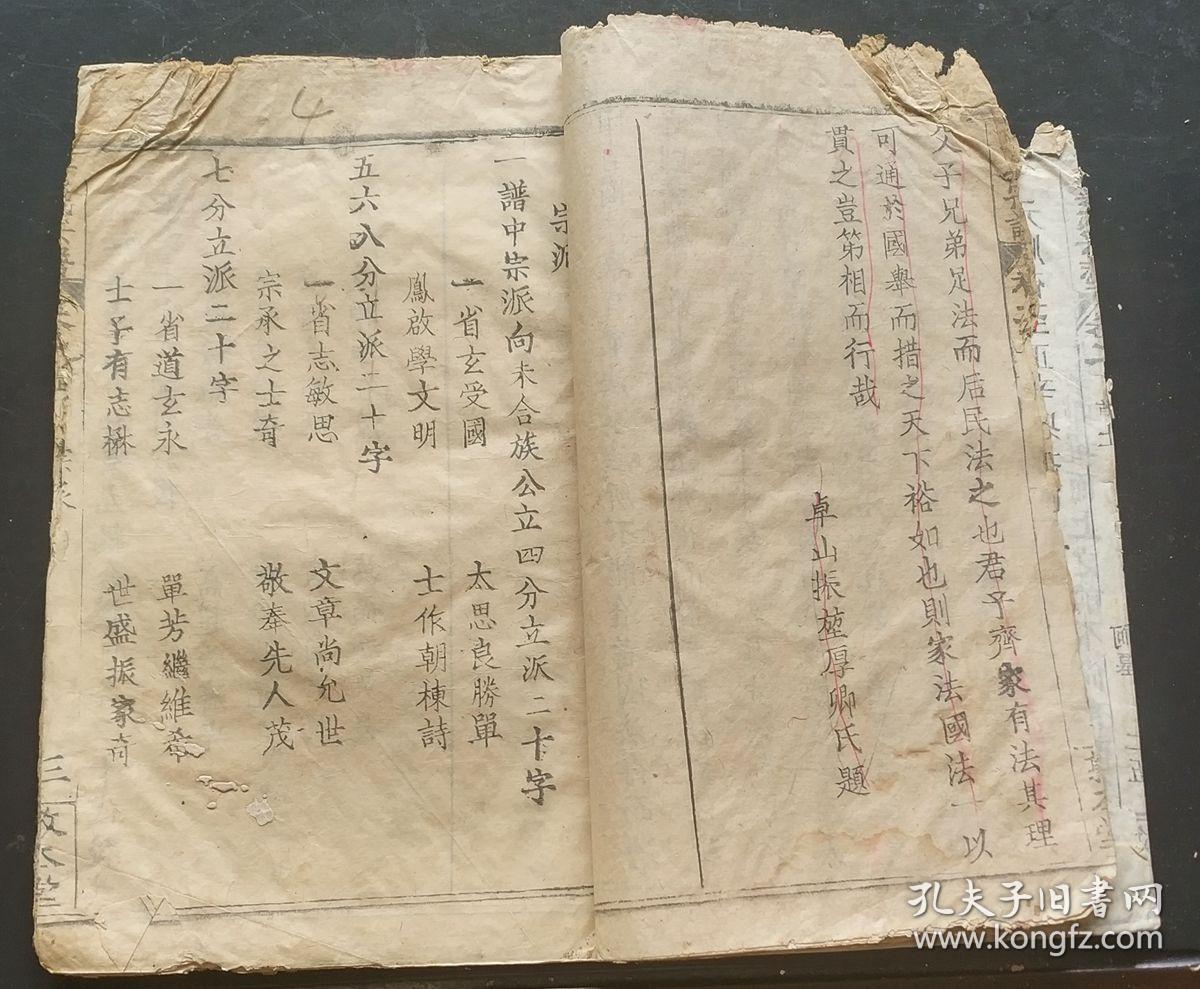 父子兄弟足法而后民法之也君子齊家有法其理
可通於國舉而措之天下裕如也則家法國法一以
貫之豈第相而行哉
卓山振堃厚卿氏題
宗派
一譜中宗派向未合族公立四分立派二十字
一省玄受國 太思良勝單
鳳啟學文明 士作朝棟詩
五六八分立派二十字
一省志敏思 文章尚允世
宗承之士奇 敬奉先人茂
七分立派二十字
一省道玄永 單芳繼維希
士子有志楙 世盛振家奇
三
敦本堂
4
孔夫子旧书网
www.kongfz.com